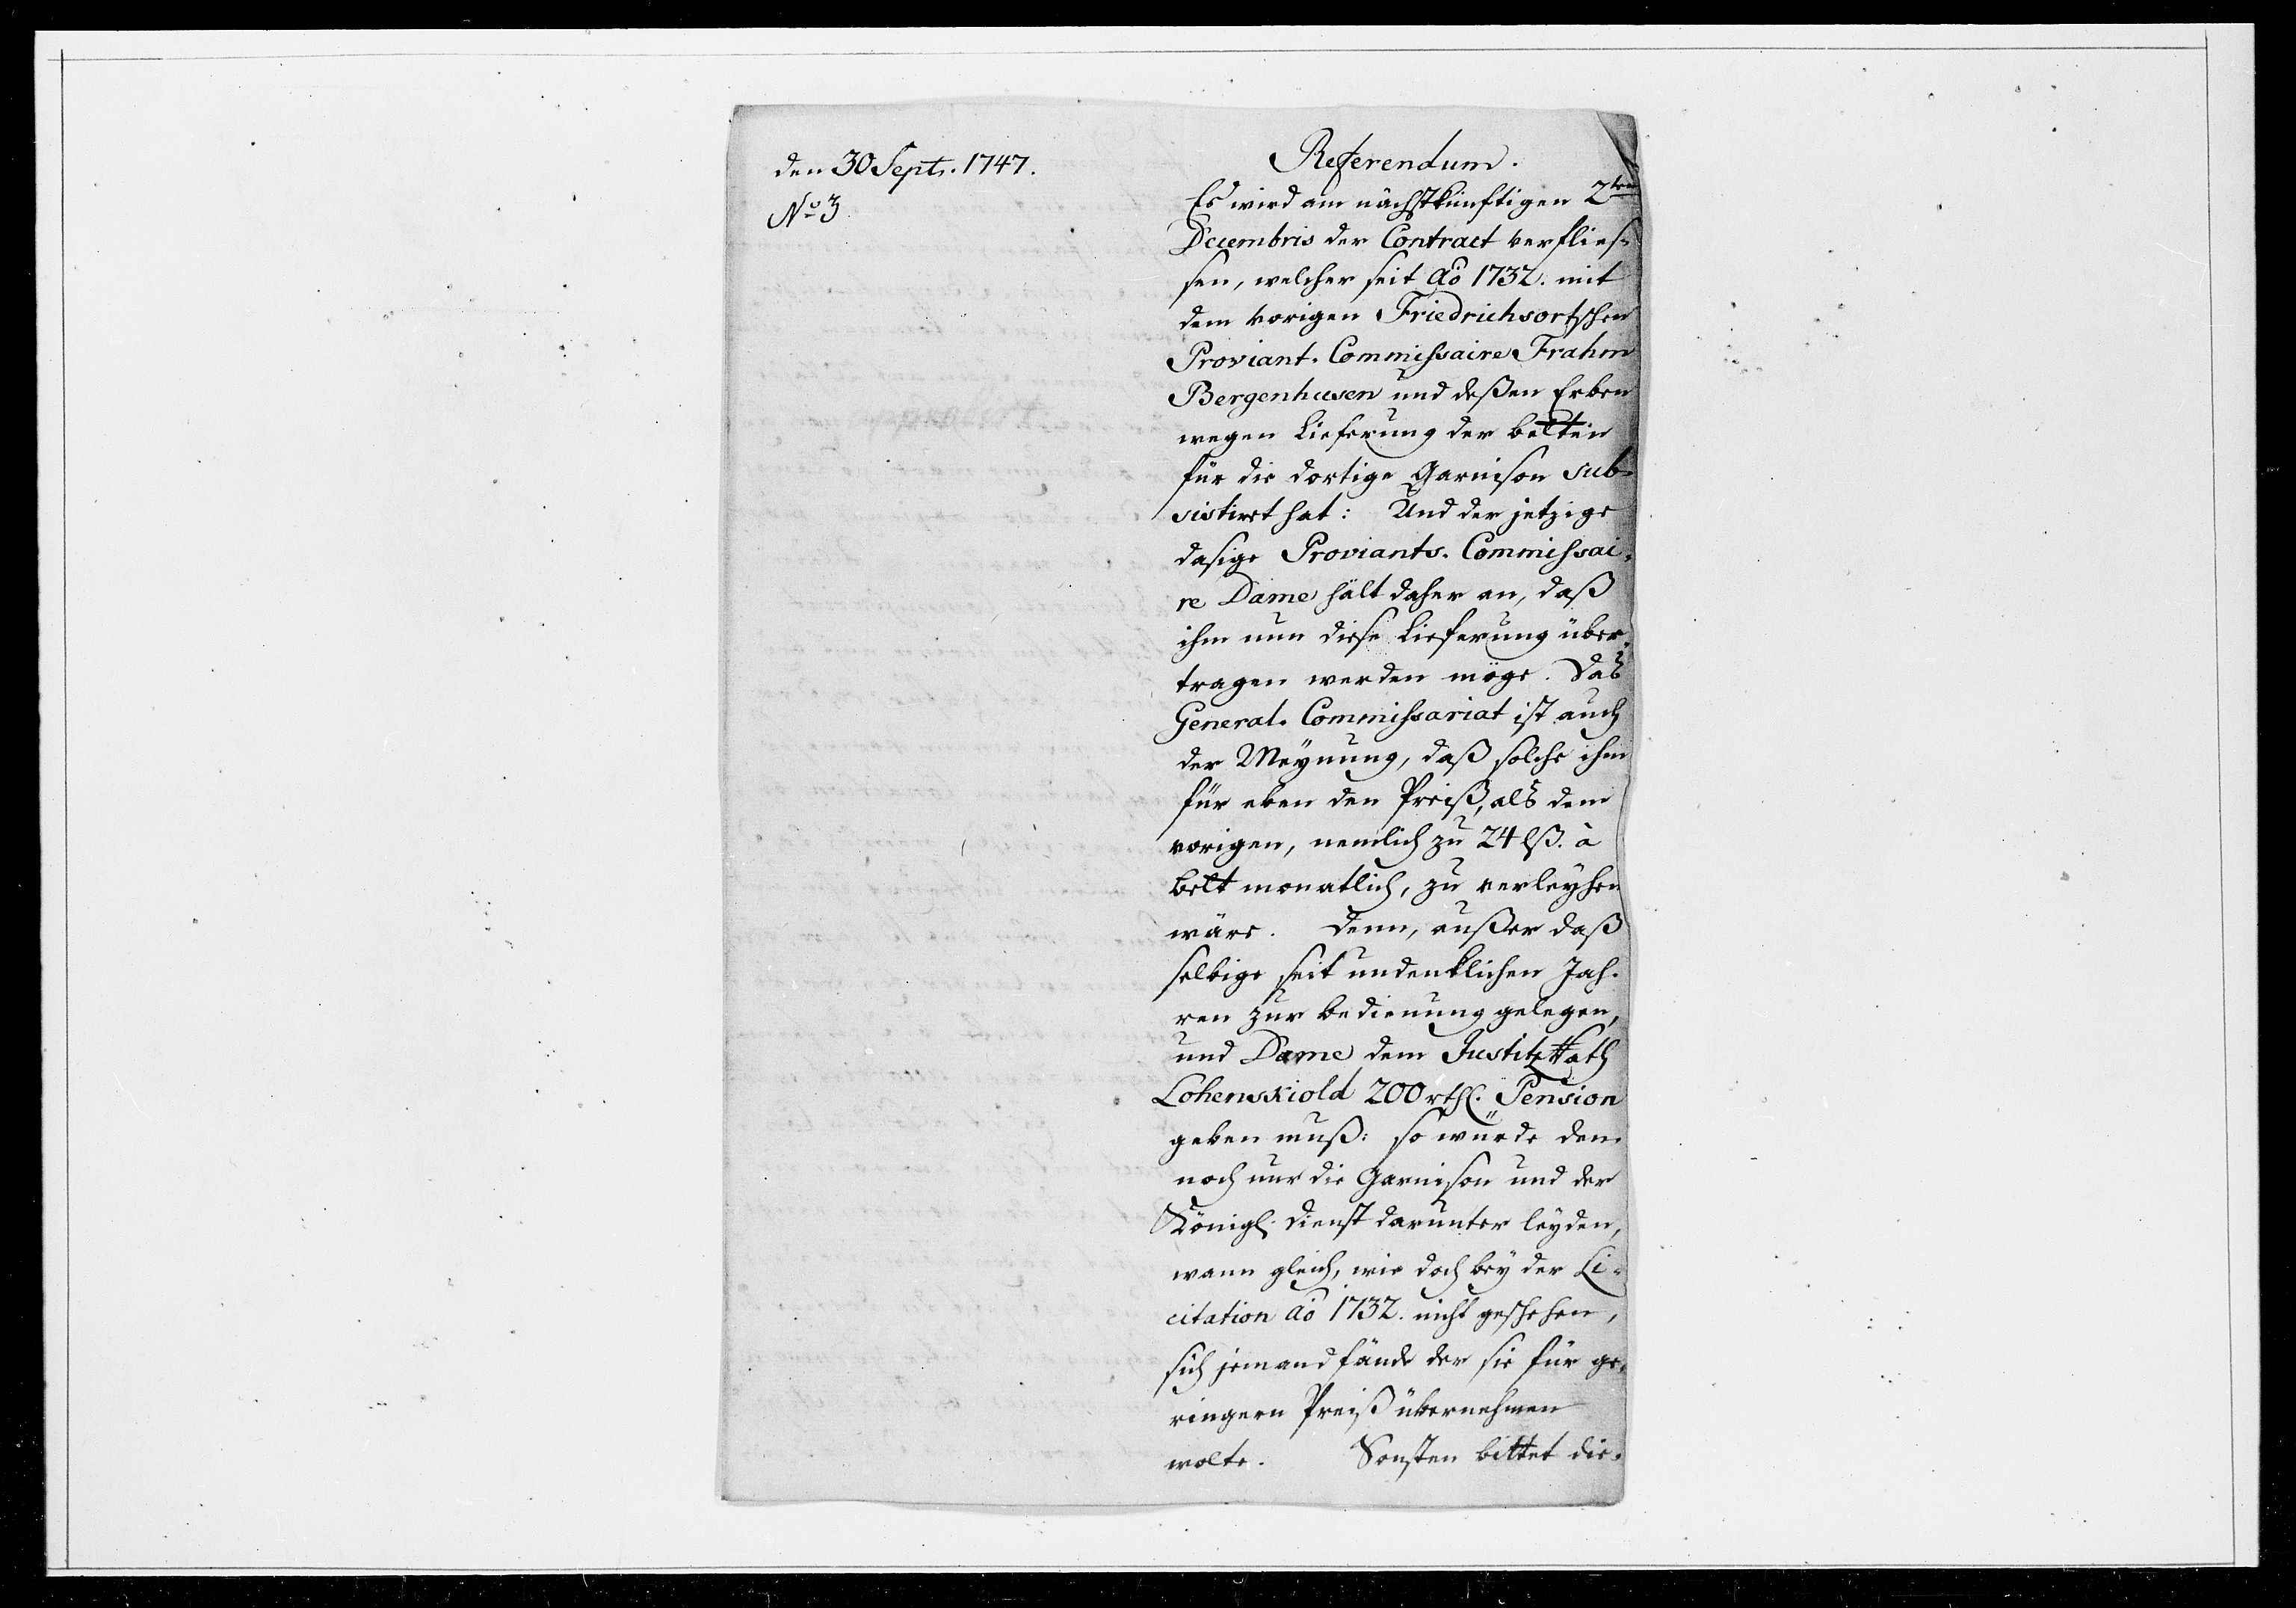 den 30 Sept. 1747.
No 3
Referendum.
Es wird am nächstkünftigen 2ten
Decembris der Contract verflies¬
sen, welcher seit Ao 1732. mit
dem vorigen Friedrichsortschen
Proviant-Commissaire Frahm
Bergenhusen und deßen Erben
wegen Lieferung der betten
für die dortige Garnison sub¬
sistiret hat: Und der jetzige
dasige Proviants-Commissai¬
re Dame hält daher an, daß
ihm nun diese Lieferung über¬
tragen werden möge. Das
General-Commissariat ist auch
der Meynung, daß solche ihm
für eben den Preiß, als dem
vorigen, nemlich zu 24 lß. à
bett monatlich, zu verleyhen
wäre. Denn, außer daß
selbige seit undenklichen Jah¬
ren zur bedienung gelegen,
und Dame dem JustitzRath
Lohenskiold 200 rthl. Pension
geben muß: so würde den¬
noch nur die Garnison und der
Königl. Dienst darunter leyden,
wann gleich, wie doch bey der Li¬
citation ao 1732. nicht geschehen,
sich jemand fände der sie für ge¬
ringern Preiß übernehmen
wolte. Sonsten bittet die¬